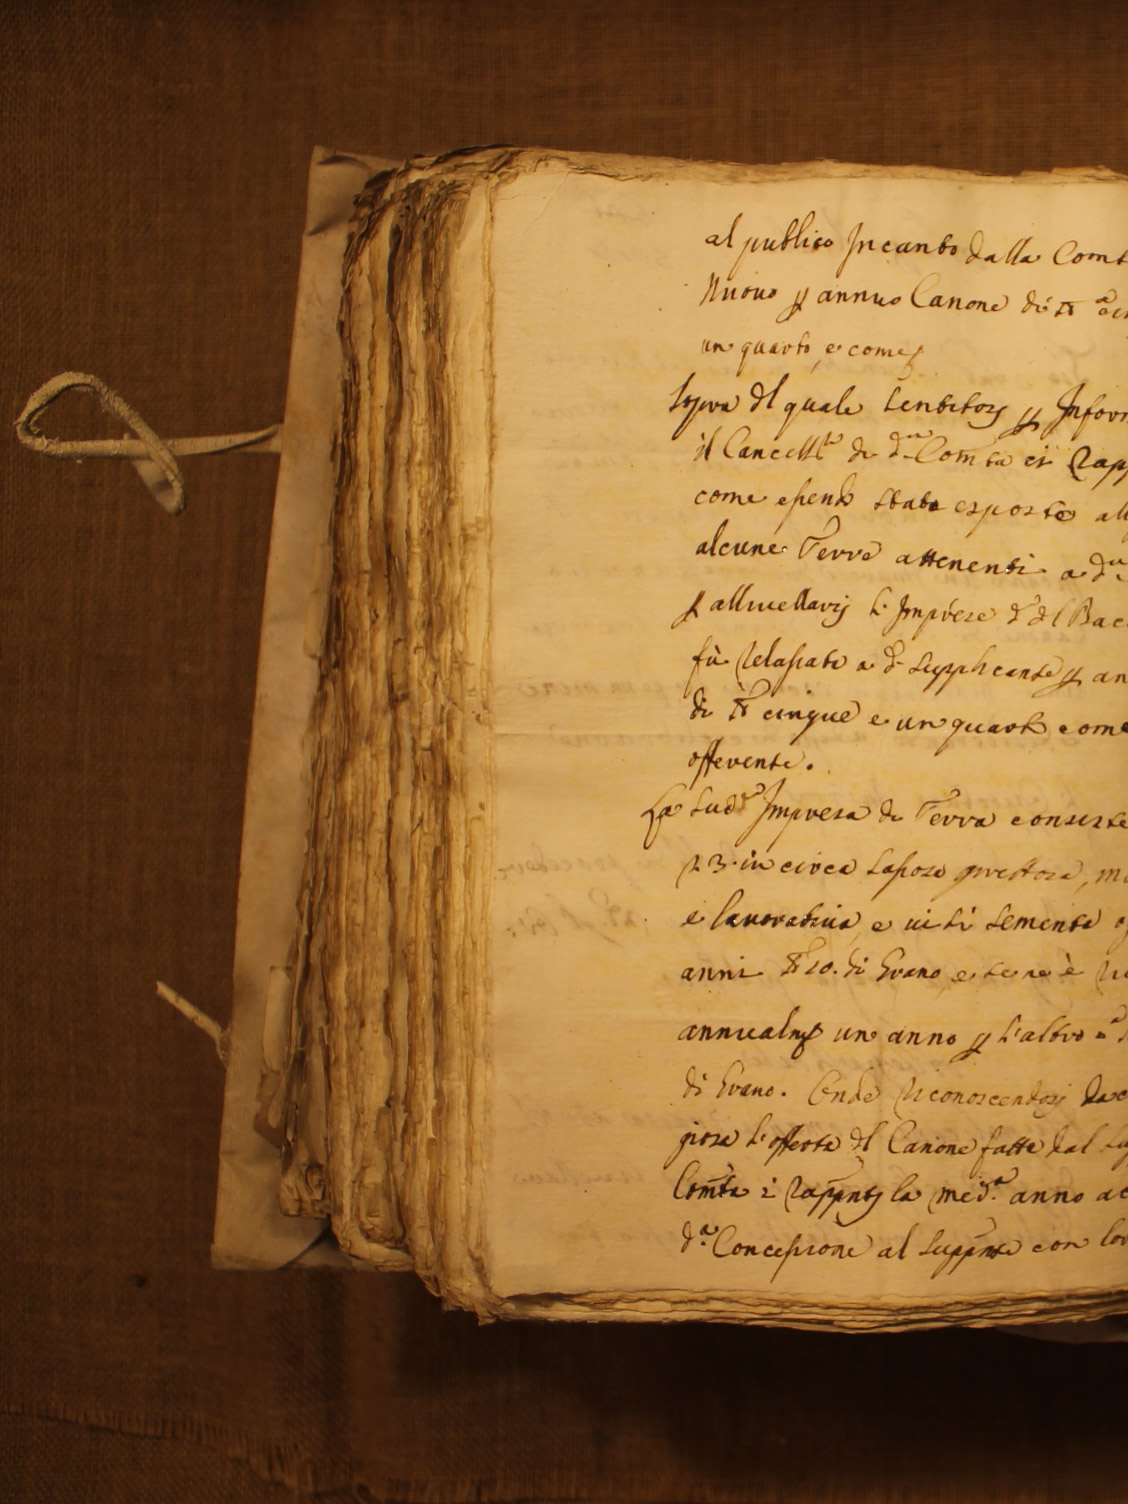 al publico Incanto dalla Comt
Nuouo annuo Canone di
un quarto, e come
Sopra dl quale sentitosi Infor
il Cancell.re di d.a Comtà ci Rapp
come essendo stato esposto all
alcune Terre attenenti a d.a
allivellarsi l'Imprese d.o dl Bac
fù Relassato a d.o Supplicante an
di cinque e un quarto come
offerente.
La Sud.a Impresa di Terra consiste
23. in circa sassosa grettosa, m
e lavoratiua, e ui si sementa
anni 10. di Grano, e se ne è
annualm.te un anno l'altro
di Grano. Onde Riconoscendosi
giosa l'offerta dl Canone fatta dal Su
Comtà i Rapp.nti la med.a anno ac
d.a Concessione al Supp.nte con lor